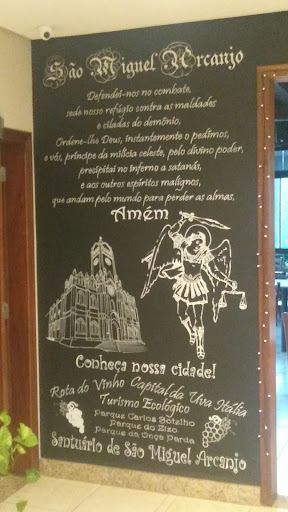 São Miguel Arcanjo
Defendei-nos no combate,
sede nosso refúgio contra as maldades
e ciladas do demônio,
Ordene-lhe Deus, instantemente o pedimos,
e vós, príncipe da milícia celeste, pelo divino poder,
precipitai no inferno a satanás,
e aos outros espíritos malignos,
que andam pelo mundo para perder as almas,
Amém
Conheça nossa cidade!
Rota do Vinho Capital da Uva Itália
Turismo Ecológico
Parque Carlos Botelho
Parque do Zizo
Parque da Onça Parda
Santuário de São Miguel Arcanjo